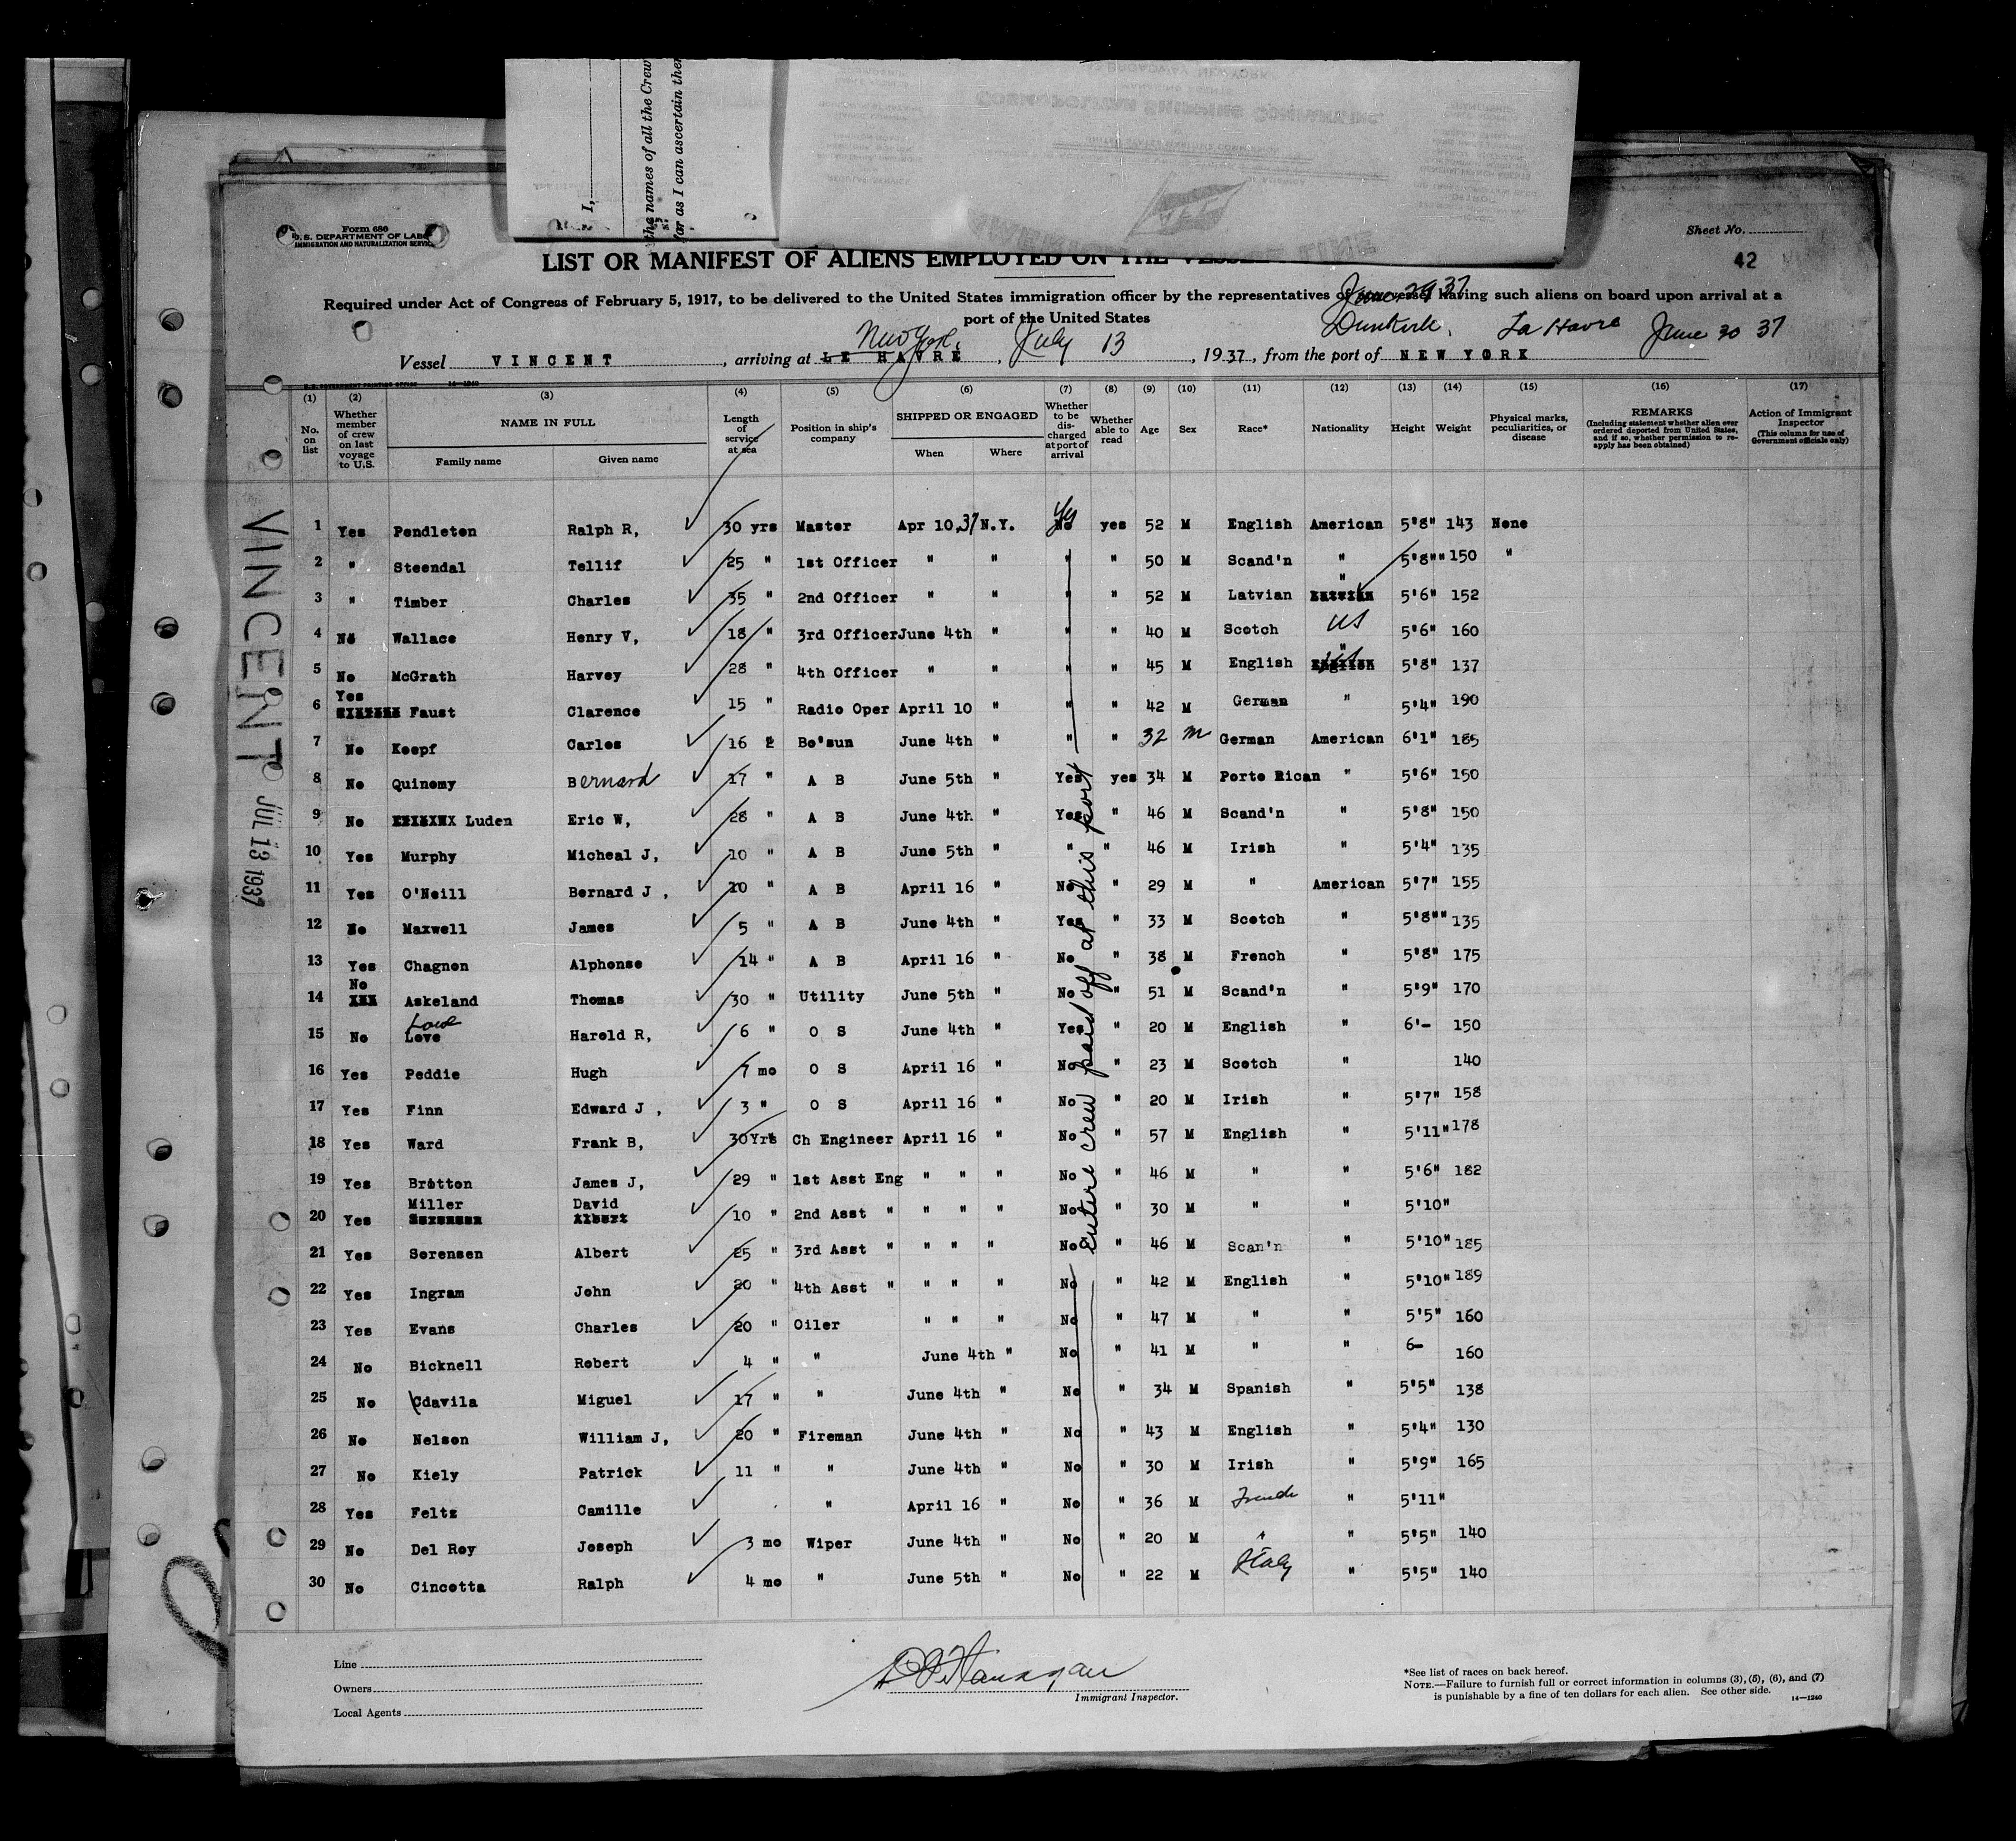 I,
the names of all the Crew
far as I can ascertain
COSMOPOLITAN SHIPPING COMPANY INC.
Form 680
U.S. DEPARTMENT OF LABOR
IMMIGRATION AND NATURALIZATION SERVICE
Sheet No.
42
LIST OR MANIFEST OF ALIENS EMPLOYED ON THE VESSEL
Required under Act of Congress of February 5, 1917, to be delivered to the United States immigration officer by the representatives of any vessel having such aliens on board upon arrival at a
port of the United States
June 29 37
Dunkirk, La Havre June 30 37
New York, July 13
Vessel VINCENT, arriving at LE HAVRE, 1937, from the port of NEW YORK
U.S. GOVERNMENT PRINTING OFFICE 14-1240
(1) (2) (3) (4) (5) (6) (7) (8) (9) (10) (11) (12) (13) (14) (15) (16) (17)
No. on list
Whether member of crew on last voyage to U.S.
NAME IN FULL
Family name
Given name
Length of service at sea
Position in ship's company
SHIPPED OR ENGAGED
When
Where
Whether to be discharged at port of arrival
Whether able to read
Age
Sex
Race*
Nationality
Height
Weight
Physical marks, peculiarities, or disease
REMARKS
(Including statement whether alien ever ordered deported from United States, and if so, whether permission to reapply has been obtained)
Action of Immigrant Inspector
(This column for use of Government officials only)
VINCENT
JUL 13 1937
1 Yes Pendleton Ralph R, 30 yrs Master Apr 10,37 N.Y. No Yes yes 52 M English American 5'8" 143 None
2 " Steendal Tellif 25 " 1st Officer " " " " 50 M Scand'n " 5'8"" 150 "
3 " Timber Charles 35 " 2nd Officer " " " " 52 M Latvian " Latvian 5'6" 152
4 No Wallace Henry V, 18 " 3rd Officer June 4th " " " 40 M Scotch US 5'6" 160
5 No McGrath Harvey 28 " 4th Officer " " " " 45 M English " English 5'8" 137
6 Yes Faust Clarence 15 " Radio Oper April 10 " " " 42 M German " 5'4" 190
7 No Koepf Carlos 16 " Bo'sun June 4th " " " 32 M German American 6'1" 185
8 No Quinomy Bernard 17 " A B June 5th " Yes yes 34 M Porto Rican " 5'6" 150
9 No Luden Eric W, 28 " A B June 4th " Yes " 46 M Scand'n " 5'8" 150
10 Yes Murphy Micheal J, 10 " A B June 5th " " " 46 M Irish " 5'4" 135
11 Yes O'Neill Bernard J , 10 " A B April 16 " No " 29 M " American 5'7" 155
12 No Maxwell James 5 " A B June 4th " Yes " 33 M Scotch " 5'8"" 135
13 Yes Chagnon Alphonse 14 " A B April 16 " No " 38 M French " 5'8" 175
14 No Askeland Thomas 30 " Utility June 5th " No " 51 M Scand'n " 5'9" 170
15 No Love Lowe Harold R, 6 " O S June 4th " Yes " 20 M English " 6'- 150
16 Yes Peddie Hugh 7 mo O S April 16 " No " 23 M Scotch " 140
17 Yes Finn Edward J , 3 " O S April 16 " No " 20 M Irish " 5'7" 158
18 Yes Ward Frank B, 30Yrs Ch Engineer April 16 " No " 57 M English " 5'11" 178
19 Yes Bretton James J, 29 " 1st Asst Eng " " " No " 46 M " " 5'6" 182
20 Yes Miller Sorensen David Albert 10 " 2nd Asst " " " " No " 30 M " " 5'10"
21 Yes Sorensen Albert 25 " 3rd Asst " " " " No " 46 M Scan'n " 5'10" 185
22 Yes Ingram John 20 " 4th Asst " " " " No " 42 M English " 5'10" 189
23 Yes Evans Charles 20 " Oiler " " " No " 47 M " " 5'5" 160
24 No Bicknell Robert 4 " " June 4th " No " 41 M " " 6- 160
25 No Cdavila Miguel 17 " " June 4th " No " 34 M Spanish " 5'5" 138
26 No Nelson William J, 20 " Fireman June 4th " No " 43 M English " 5'4" 130
27 No Kiely Patrick 11 " " June 4th " No " 30 M Irish " 5'9" 165
28 Yes Feltz Camille " April 16 " No " 36 M French " 5'11"
29 No Del Roy Joseph 3 mo Wiper June 4th " No " 20 M " " 5'5" 140
30 No Cincotta Ralph 4 mo " June 5th " No " 22 M Italy " 5'5" 140
Entire crew paid off at this port
Line
Owners
Local Agents
Immigrant Inspector.
*See list of races on back hereof.
NOTE.—Failure to furnish full or correct information in columns (3), (5), (6), and (7)
is punishable by a fine of ten dollars for each alien. See other side.
14-1240